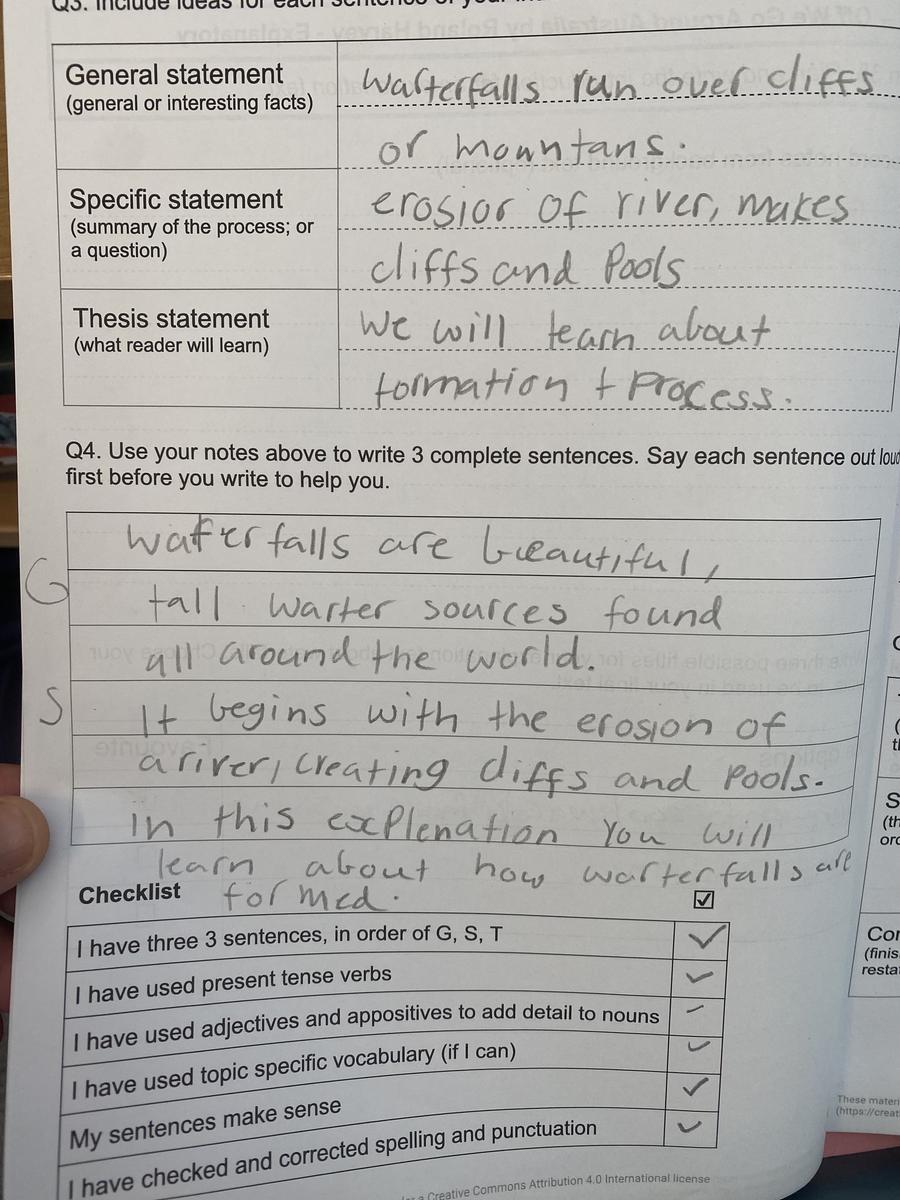 Q3. Include ideas for each sentence of your
General statement
(general or interesting facts)
warterfalls run over cliffs
or mountans.
Specific statement
(summary of the process; or
a question)
erosior of river, makes
cliffs and Pools
Thesis statement
(what reader will learn)
We will learn about
formation + Process.
Q4. Use your notes above to write 3 complete sentences. Say each sentence out loud
first before you write to help you.
waterfalls are breautiful,
G
tall warter sources found
all around the world.
S
It begins with the erosion of
a river, creating cliffs and Pools.
In this explenation You will
learn about how warterfalls are
formed.
Checklist
I have three 3 sentences, in order of G, S, T
I have used present tense verbs
I have used adjectives and appositives to add detail to nouns
I have used topic specific vocabulary (if I can)
My sentences make sense
I have checked and corrected spelling and punctuation
a Creative Commons Attribution 4.0 International license
S
(th
orc
Con
(finis
resta
These materi
(https://creat